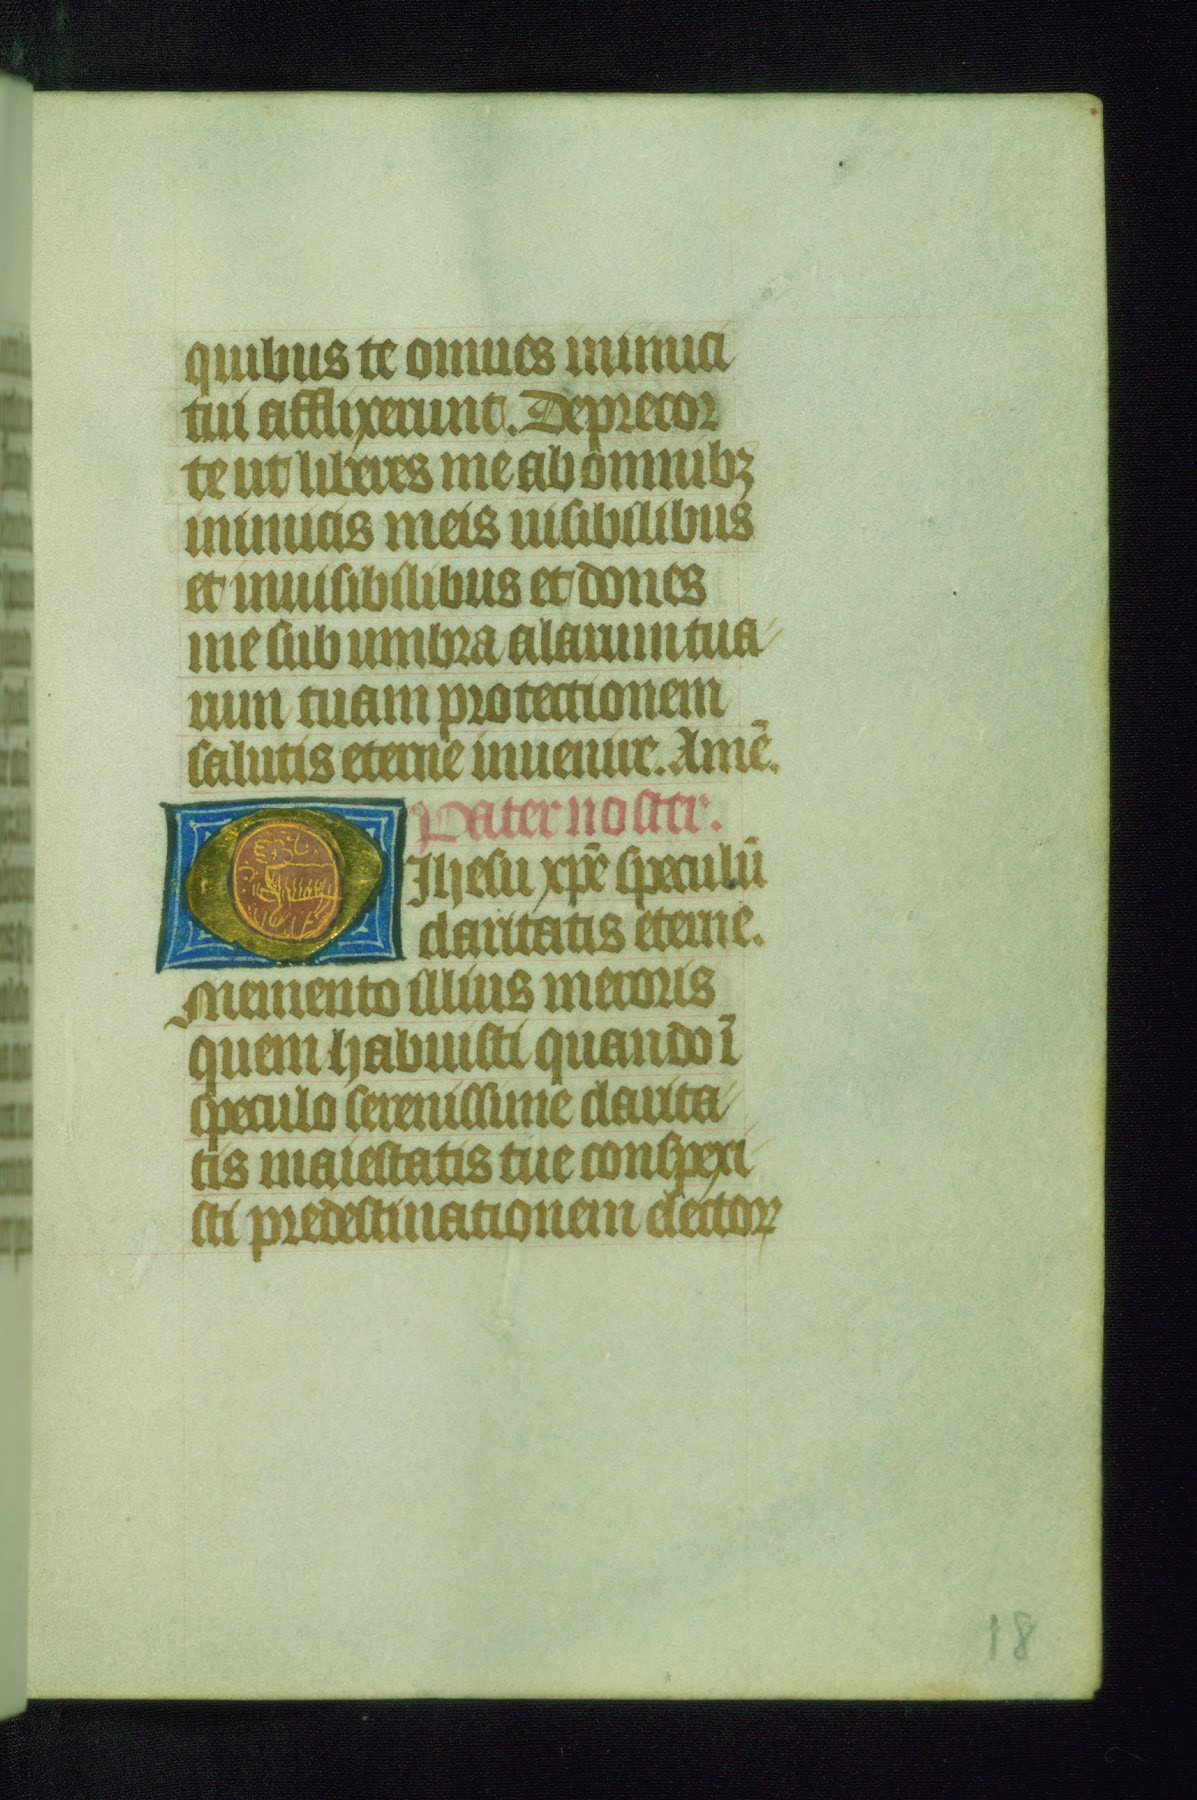 quibus te omnes inimici
tui afflixerunt. Deprecor
te ut liberes me ab omnibꝫ
inimicis meis uisibilibus
et inuisibilibus et dones
me sub umbra alarum tua
rum tuam protectionem
salutis eterne inuenire. Amē.
Pater noster.
O Jhesu xp̄e speculū
claritatis eterne.
Memento illius meroris
quem habuisti quando ī
speculo serenissime clarita
tis maiestatis tue conspexi
sti predestinationem electoꝝ
18